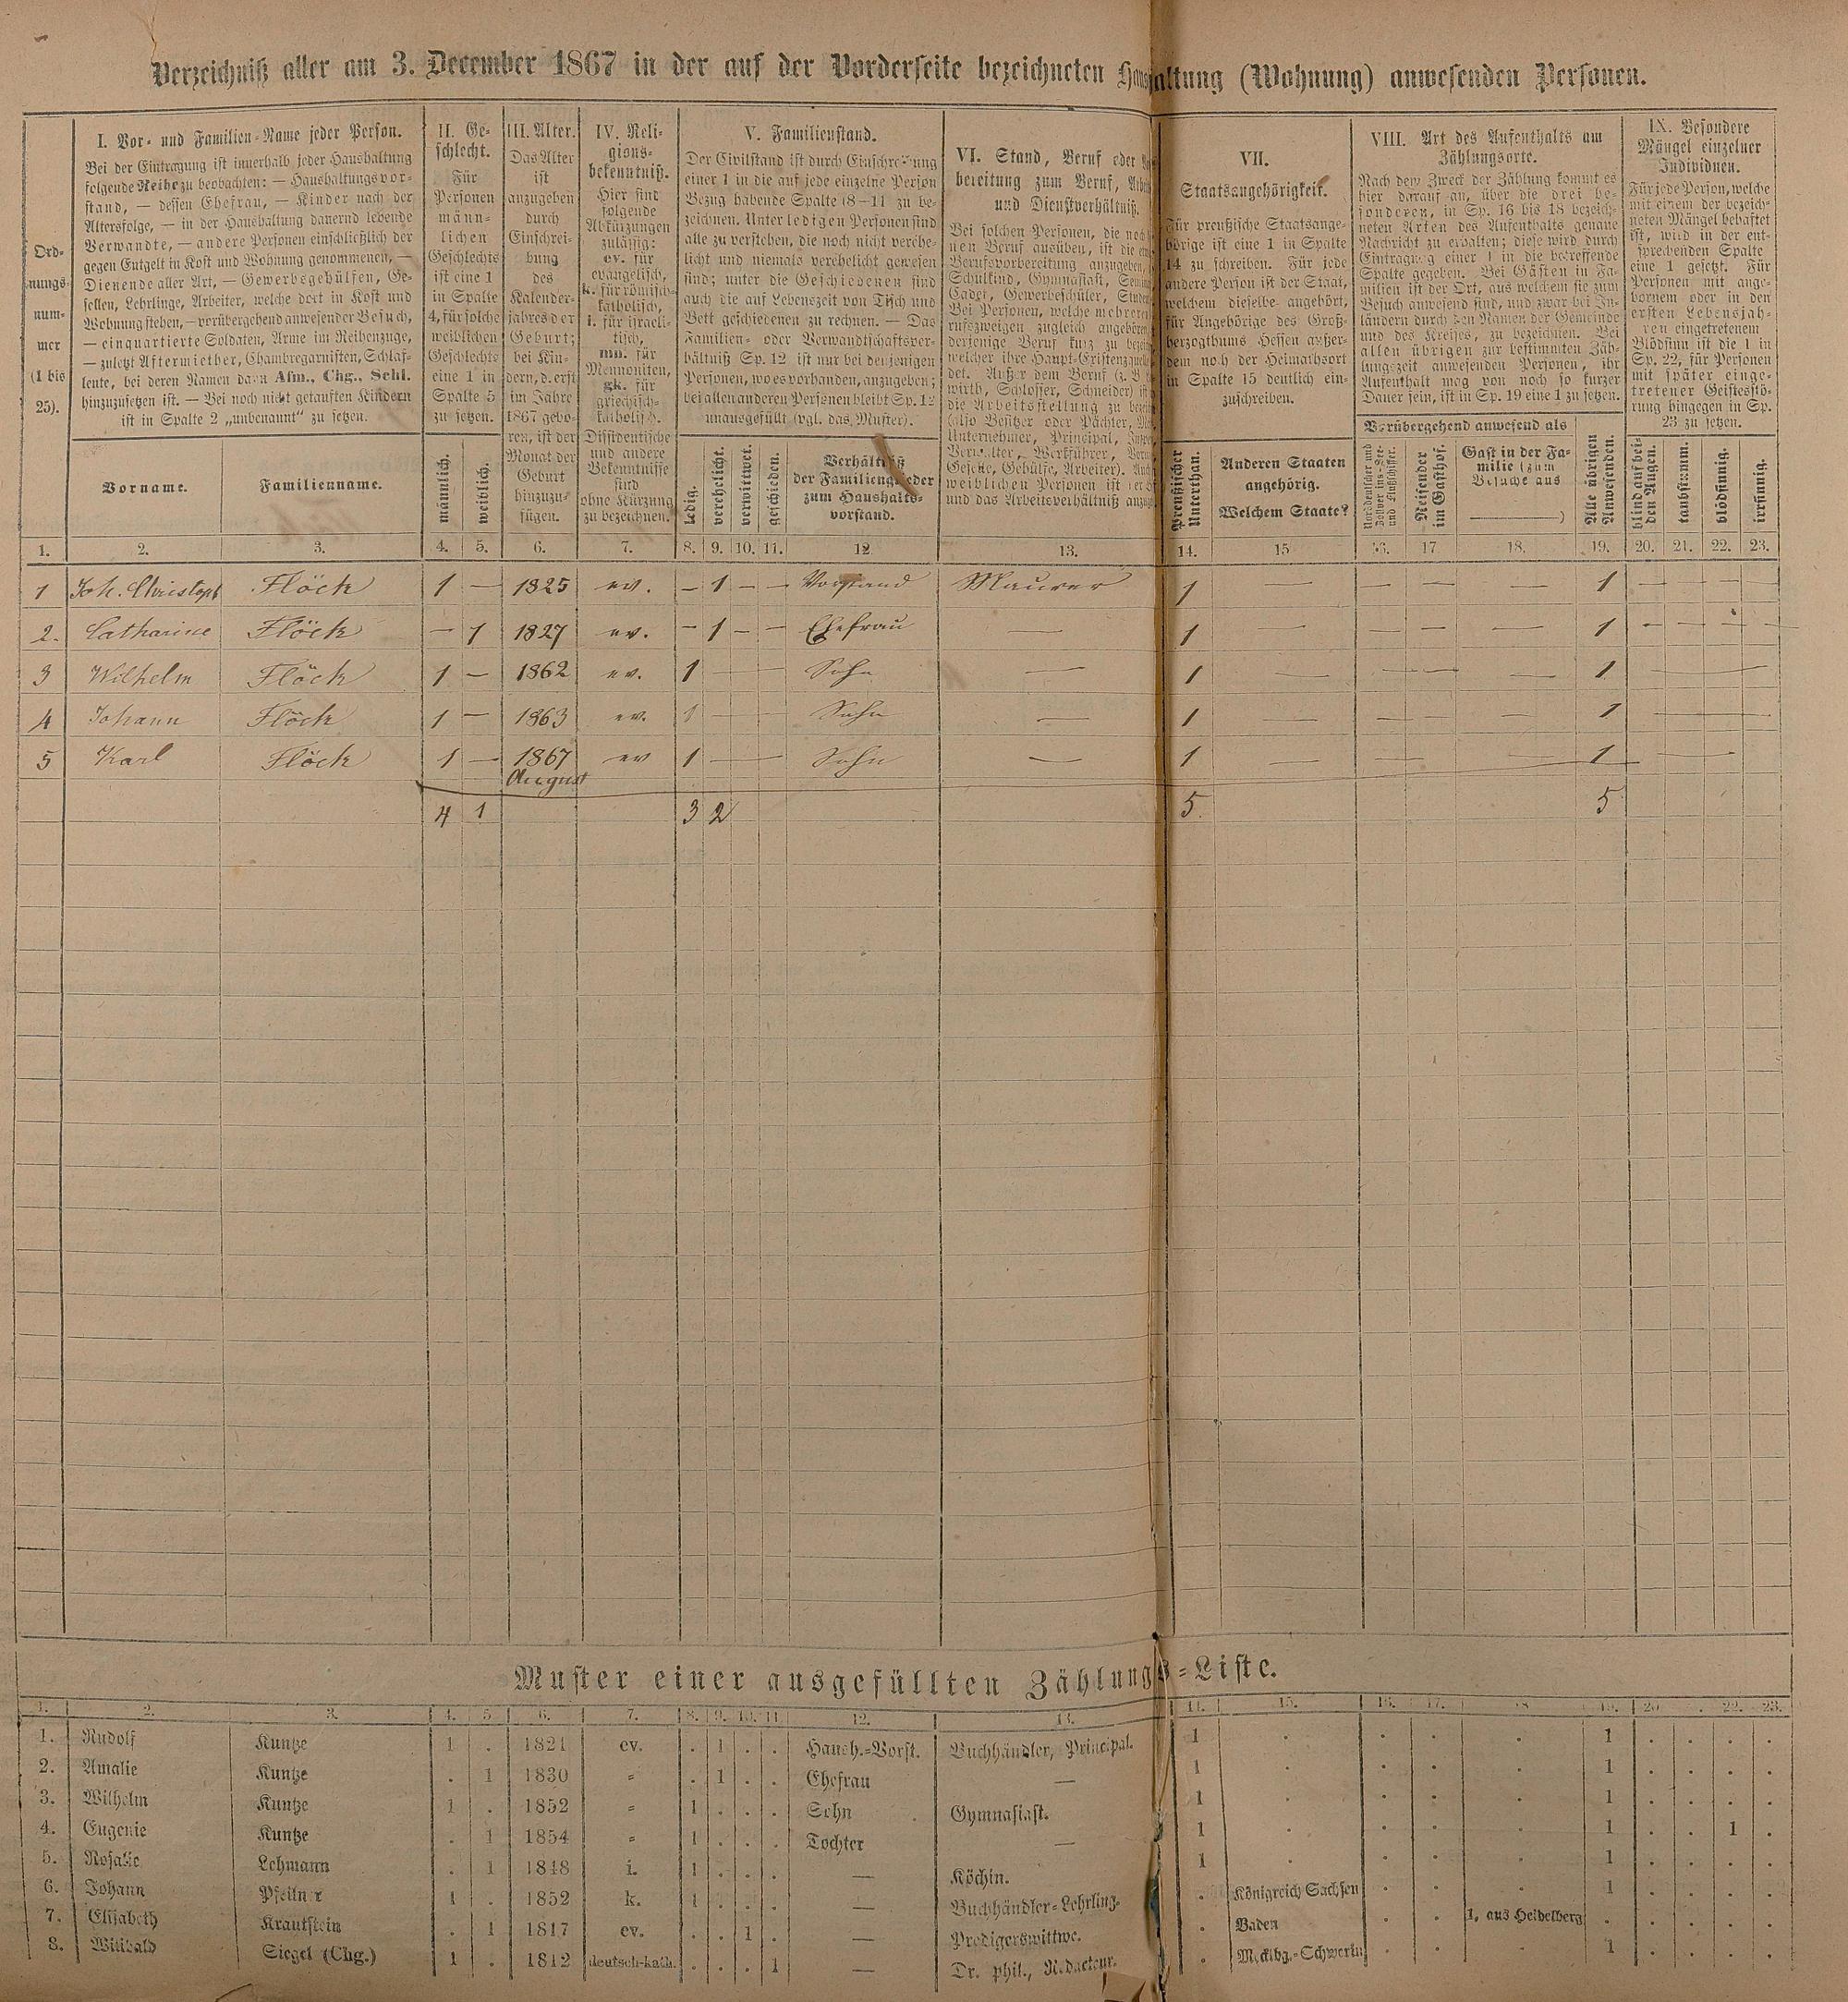 Verzeichniß aller am 3. December 1867 in der auf der Vorderseite bezeichneten Haushaltung (Wohnung) anwesenden Personen.
Ord-
nungs-
num-
mer
(1 bis
25).
I. Vor- und Familien-Name jeder Person.
Bei der Eintragung ist innerhalb jeder Haushaltung
folgende Reihe zu beobachten: — Haushaltungsvor-
stand, — dessen Ehefrau, — Kinder nach der
Altersfolge, — in der Haushaltung dauernd lebende
Verwandte, — andere Personen einschließlich der
gegen Entgelt in Kost und Wohnung genommenen, —
Dienende aller Art, — Gewerbsgehülfen, Ge-
sellen, Lehrlinge, Arbeiter, welche dort in Kost und
Wohnung stehen, — vorübergehend anwesender Besuch,
— einquartierte Soldaten, Arme im Reihenzuge,
— zuletzt Aftermiether, Chambregarnisten, Schlaf-
leute, bei deren Namen dann Afm., Chg., Schl.
hinzuzusetzen ist. — Bei noch nicht getauften Kindern
ist in Spalte 2 „unbenannt“ zu setzen.
Vorname.
Familienname.
II. Ge-
schlecht.
Für
Personen
männ-
lichen
Geschlechts
ist eine 1
in Spalte
4, für solche
weiblichen
Geschlechts
eine 1 in
Spalte 5
zu setzen.
männlich.
weiblich.
III. Alter.
Das Alter
ist
anzugeben
durch
Einschrei-
bung
des
Kalender-
jahres der
Geburt;
bei Kin-
dern, d. erst
im Jahre
1867 gebo-
ren, ist der
Monat der
Geburt
hinzuzu-
fügen.
IV. Reli-
gions-
bekenntniß.
Hier sind
folgende
Abkürzungen
zulässig:
ev. für
evangelisch,
k. für römisch-
katholisch,
i. für israeli-
tisch,
mn. für
Mennoniten,
gk. für
griechisch-
katholisch.
Dissidentische
und andere
Bekenntnisse
sind
ohne Kürzung
zu bezeichnen.
V. Familienstand.
Der Civilstand ist durch Einschreibung
einer 1 in die auf jede einzelne Person
Bezug habende Spalte (8—11) zu be-
zeichnen. Unter ledigen Personen sind
alle zu verstehen, die noch nicht verehe-
licht und niemals verehelicht gewesen
sind; unter die Geschiedenen sind
auch die auf Lebenszeit von Tisch und
Bett geschiedenen zu rechnen. — Das
Familien- oder Verwandtschaftsver-
hältniß Sp. 12 ist nur bei denjenigen
Personen, wo es vorhanden, anzugeben;
bei allen anderen Personen bleibt Sp. 12
unausgefüllt (vgl. das Muster).
ledig.
verehelicht.
verwittwet.
geschieden.
Verhältniß
der Familienglieder
zum Haushalts-
vorstand.
VI. Stand, Beruf oder
bereitung zum Beruf,
und Dienstverhältniß.
Bei solchen Personen, die noch
nen Beruf ausüben, ist die
Berufsvorbereitung anzugeben,
Schulkind, Gymnasiast,
Cadet, Gewerbeschüler,
Bei Personen, welche mehreren
rufszweigen zugleich angehören,
derjenige Beruf kurz zu
welcher ihre Haupt-Existenzquelle
det. Außer dem Beruf (z. B.
wirth, Schlosser, Schneider) ist
die Arbeitsstellung zu
(also Besitzer oder Pächter,
Unternehmer, Principal,
Verwalter, Werkführer,
Geselle, Gehülfe, Arbeiter).
weiblichen Personen ist der
und das Arbeitsverhältniß
VII.
Staatsangehörigkeit.
Für preußische Staatsange-
hörige ist eine 1 in Spalte
14 zu schreiben. Für jede
andere Person ist der Staat,
welchem dieselbe angehört,
für Angehörige des Groß-
herzogthums Hessen außer-
dem noch der Heimathsort
in Spalte 15 deutlich ein-
zuschreiben.
Preußischer
Unterthan.
Anderen Staaten
angehörig.
Welchem Staate?
VIII. Art des Aufenthalts am
Zählungsorte.
Nach dem Zweck der Zählung kommt es
hier darauf an, über die drei be-
sonderen, in Sp. 16 bis 18 bezeich-
neten Arten des Aufenthalts genaue
Nachricht zu erhalten; diese wird durch
Eintragung einer 1 in die betreffende
Spalte gegeben. Bei Gästen in Fa-
milien ist der Ort, aus welchem sie zum
Besuch anwesend sind, und zwar bei In-
ländern durch den Namen der Gemeinde
und des Kreises, zu bezeichnen. Bei
allen übrigen zur bestimmten Zäh-
lungszeit anwesenden Personen, ihr
Aufenthalt mag von noch so kurzer
Dauer sein, ist in Sp. 19 eine 1 zu setzen.
Vorübergehend anwesend als
Norddeutscher und
Zollvereins-See-
und Flußschiffer.
Reisender
im Gasthof.
Gast in der Fa-
milie (zum
Besuche aus
)
Alle übrigen
Anwesenden.
IX. Besondere
Mängel einzelner
Individuen.
Für jede Person, welche
mit einem der bezeich-
neten Mängel behaftet
ist, wird in der ent-
sprechenden Spalte
eine 1 gesetzt. Für
Personen mit ange-
bornem oder in den
ersten Lebensjah-
ren eingetretenem
Blödsinn ist die 1 in
Sp. 22, für Personen
mit später einge-
tretener Geistesstö-
rung hingegen in Sp.
23 zu setzen.
blind auf bei-
den Augen.
taubstumm.
blödsinnig.
irrsinnig.
1. 2. 3. 4. 5. 6. 7. 8. 9. 10. 11. 12 13. 14. 15 16. 17 18. 19. 20. 21. 22. 23.
1 Joh. Christoph Flöck 1 — 1825 ev. — 1 — — Vorstand Maurer 1 — — — — 1 — — — —
2. Catharine Flöck — 1 1827 ev. — 1 — — Ehefrau — 1 — — — — 1 — — — —
3 Wilhelm Flöck 1 — 1862 ev. 1 — — Sohn — 1 — — — — 1 — —
4 Johann Flöck 1 — 1863 ev. 1 — — Sohn — 1 — — — — 1 —
5 Karl Flöck 1 — 1867 ev 1 — — Sohn — 1 — — — — 1 — —
August
4 1 3 2 5 5
Muster einer ausgefüllten Zählungs-Liste.
1. 2. 3. 4. 5 6. 7. 8. 9. 10. 11 12. 13. 14. 15. 16. 17. 18 19. 20 . 22. 23.
1. Rudolf Kuntze 1 . 1821 ev. . 1 . . Haush.-Vorst. Buchhändler, Principal. 1 . . . . 1 . . . .
2. Amalie Kuntze . 1 1830 „ . 1 . . Ehefrau — 1 . . . . 1 . . . .
3. Wilhelm Kuntze 1 . 1852 „ 1 . . . Sohn Gymnasiast. 1 . . . . 1 . . . .
4. Eugenie Kuntze . 1 1854 „ 1 . . . Tochter — 1 . . . . 1 . . 1 .
5. Rosalie Lehmann . 1 1848 i. 1 . . . — Köchin. 1 . . . . 1 . . . .
6. Johann Pfeilner 1 . 1852 k. 1 . . . — Buchhändler-Lehrling. . Königreich Sachsen . . . 1 . . . .
7. Elisabeth Krautstein . 1 1817 ev. . . 1 . — Predigerswittwe. . Baden . . 1, aus Heidelberg . . . . .
8. Willibald Siegel (Chg.) 1 . 1812 deutsch-kath. . . . 1 — Dr. phil., Redacteur. . Mecklbg.-Schwerin . . . 1 . . . .